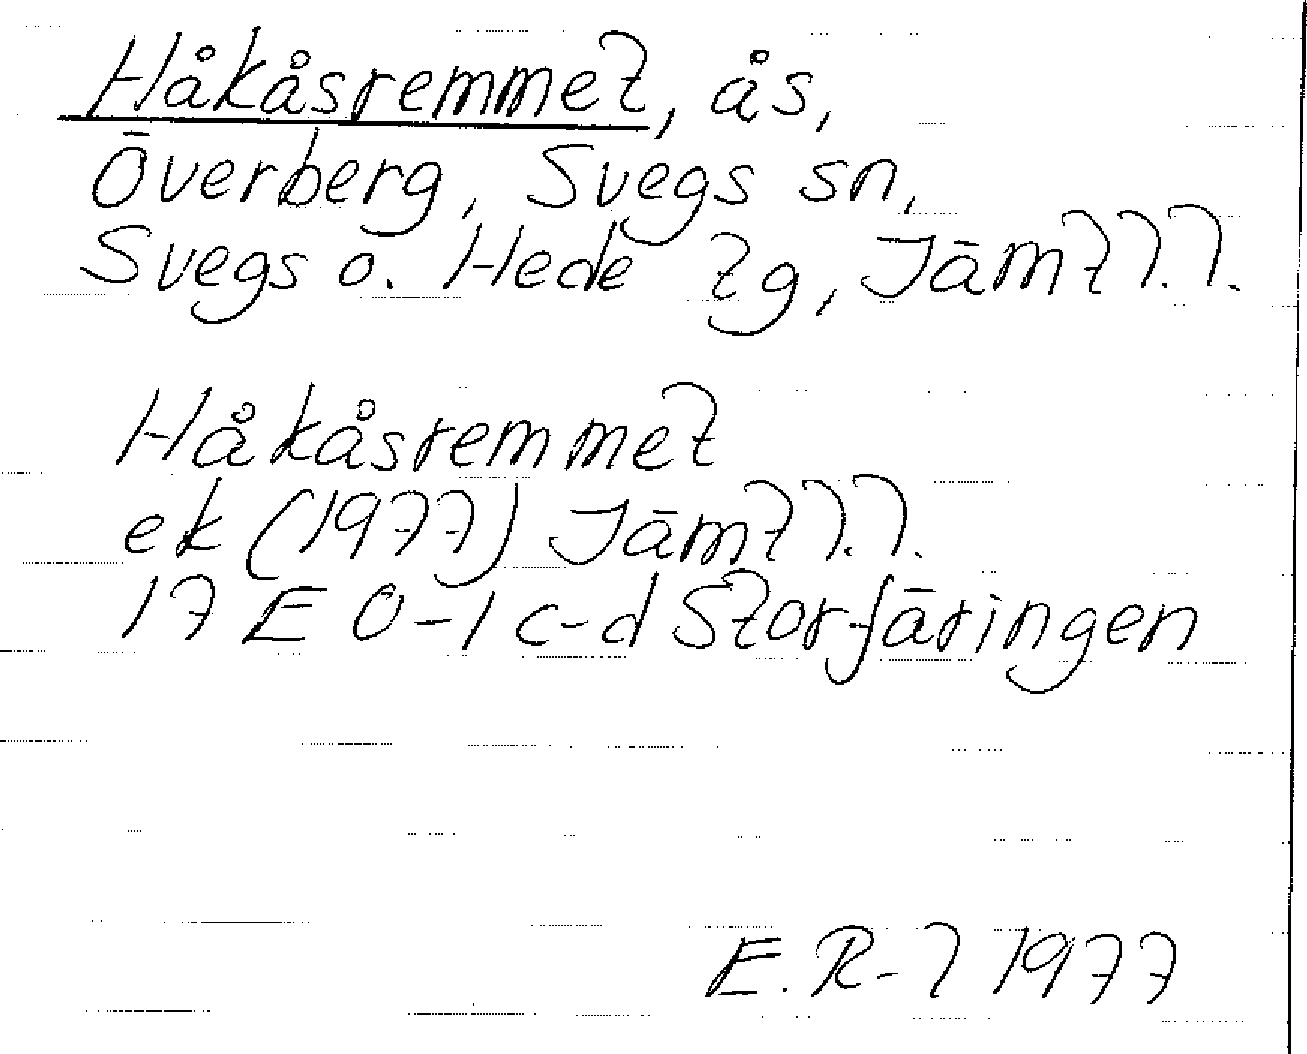 Håkåsremmet, ås,
Överberg, Svegs sn,
Svegs o. Hede tg, Jämtl.l.
Håkåsremmet
ek (1977) Jämtl.l.
17 E 0-1 c-d Storfäringen
E.R-l 1977